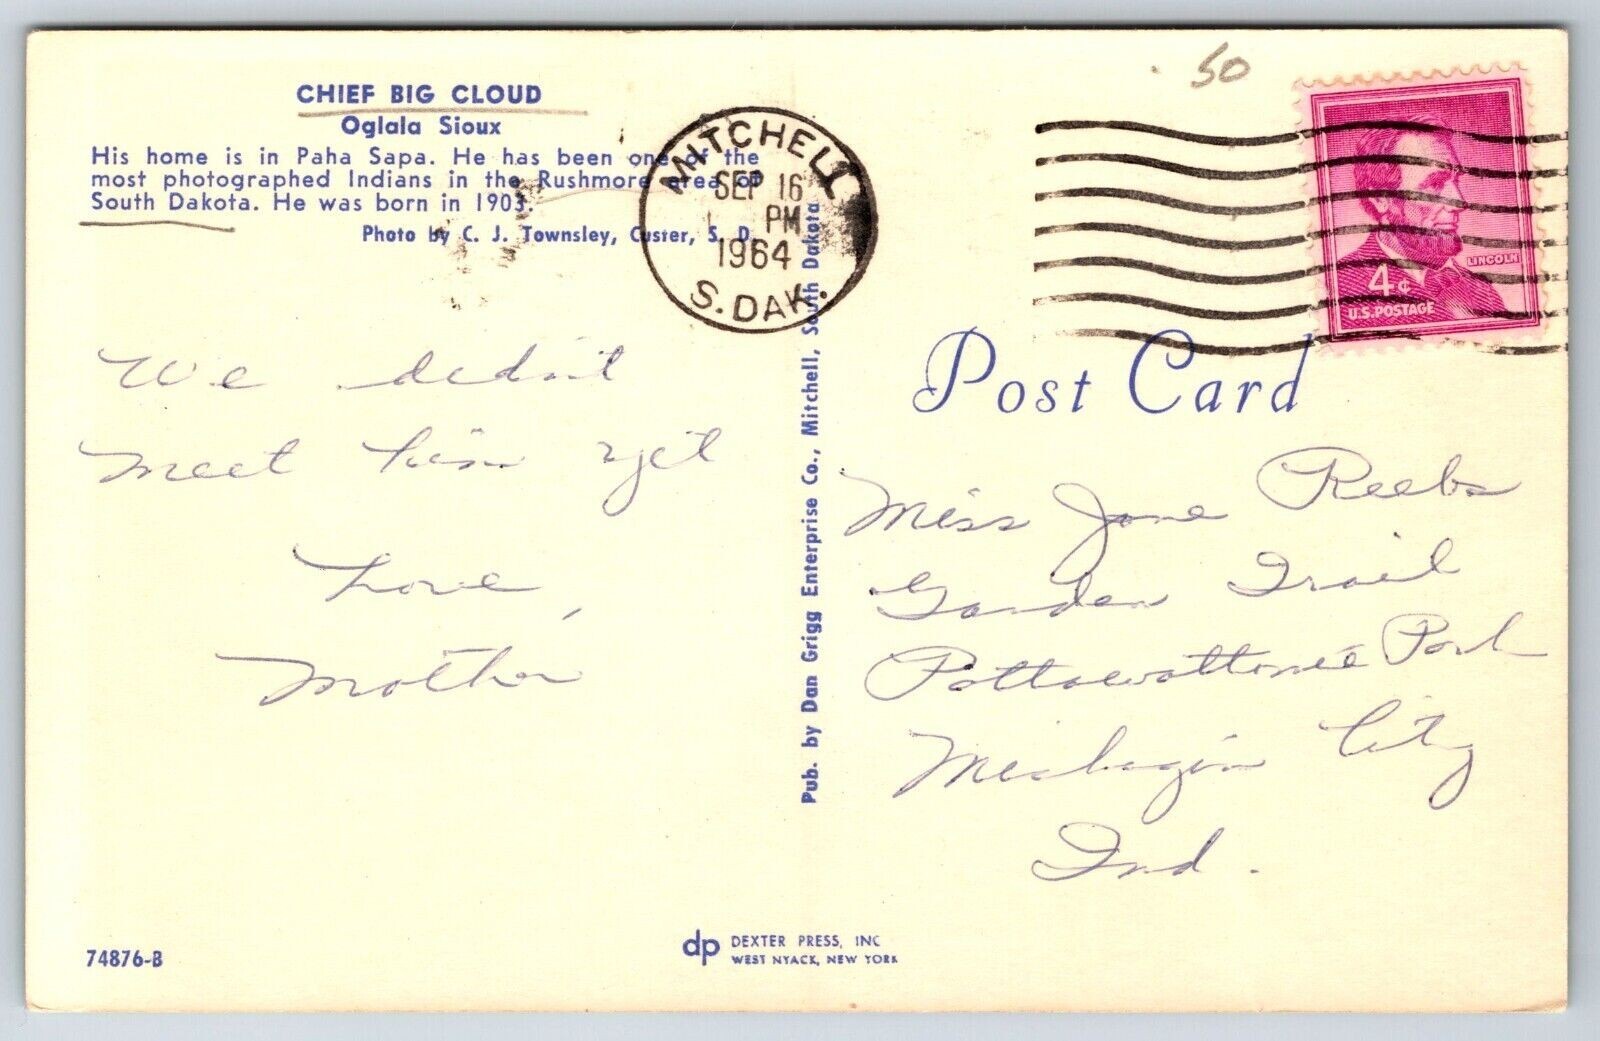 CHIEF BIG CLOUD
Oglala Sioux
His home is in Paha Sapa. He has been one of the
most photographed Indians in the Rushmore area of
South Dakota. He was born in 1903.
Photo by C. J. Townsley, Custer, S. D.
We didn't
meet him yet
Love,
Mother
74876-B
MITCHELL
SEP 16
PM
1964
S. DAK.
Pub. by Dan Grigg Enterprise Co., Mitchell, South Dakota
dp DEXTER PRESS, INC
WEST NYACK, NEW YORK
50
LINCOLN
4¢
U.S. POSTAGE
Post Card
Miss Jane Reebs
Garden Trail
Pottawattomie Park
Michigan City
Ind.